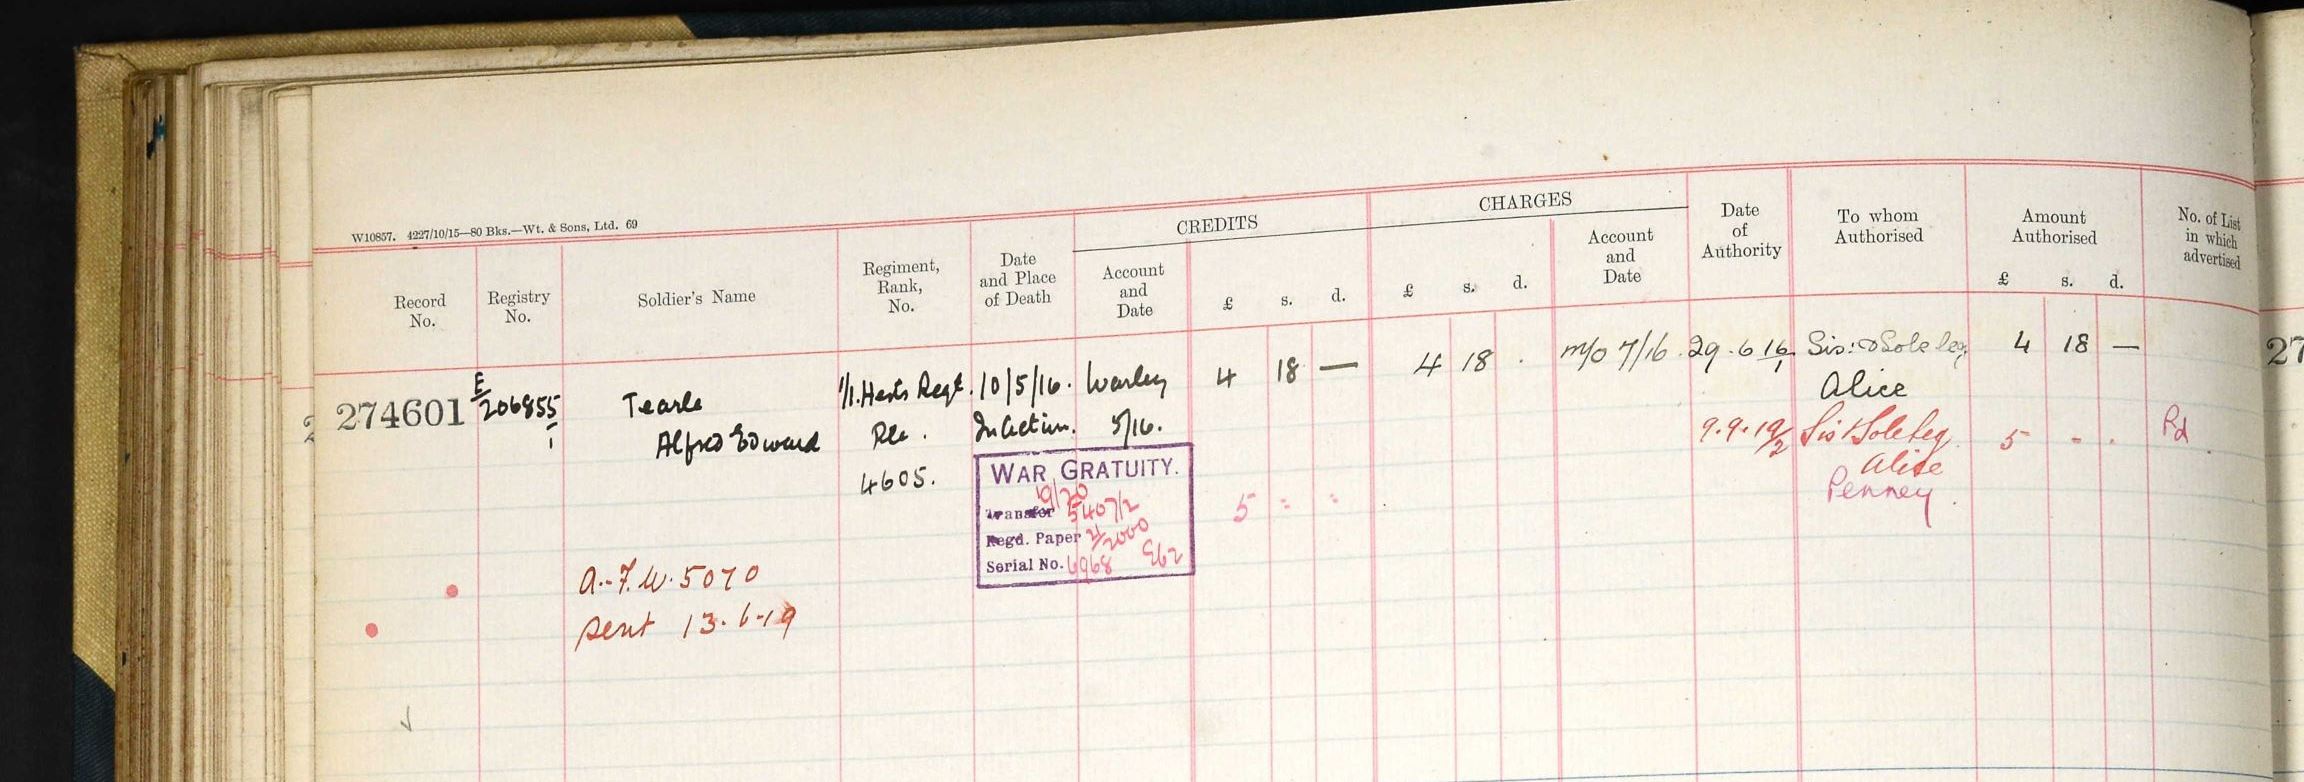 W10857. 4227/10/15—80 Bks.—Wt. & Sons, Ltd. 69
CREDITS
CHARGES
Record No.
Registry No.
Soldier's Name
Regiment, Rank, No.
Date and Place of Death
Account and Date
£ s. d.
£ s. d.
Account and Date
Date of Authority
To whom Authorised
Amount Authorised
£ s. d.
No. of List in which advertised
274601
E
206855
1
Tearle
Alfred Edward
1/1. Herts Regt.
Pte.
4605.
10/5/16.
In action.
Warley
5/16.
4 18 —
4 18 .
m/o 7/16
29.6.16
1
Sis: & Sole leg.
Alice
4 18 —
27
9.9.19
2
Sis & Sole leg.
Alice
Penney
5 - .
Pd
WAR GRATUITY.
19/20
Transfer 5407/2
Regd. Paper 2/2000
Serial No.
5 : :
A.F.W. 5070
sent 13-6-19